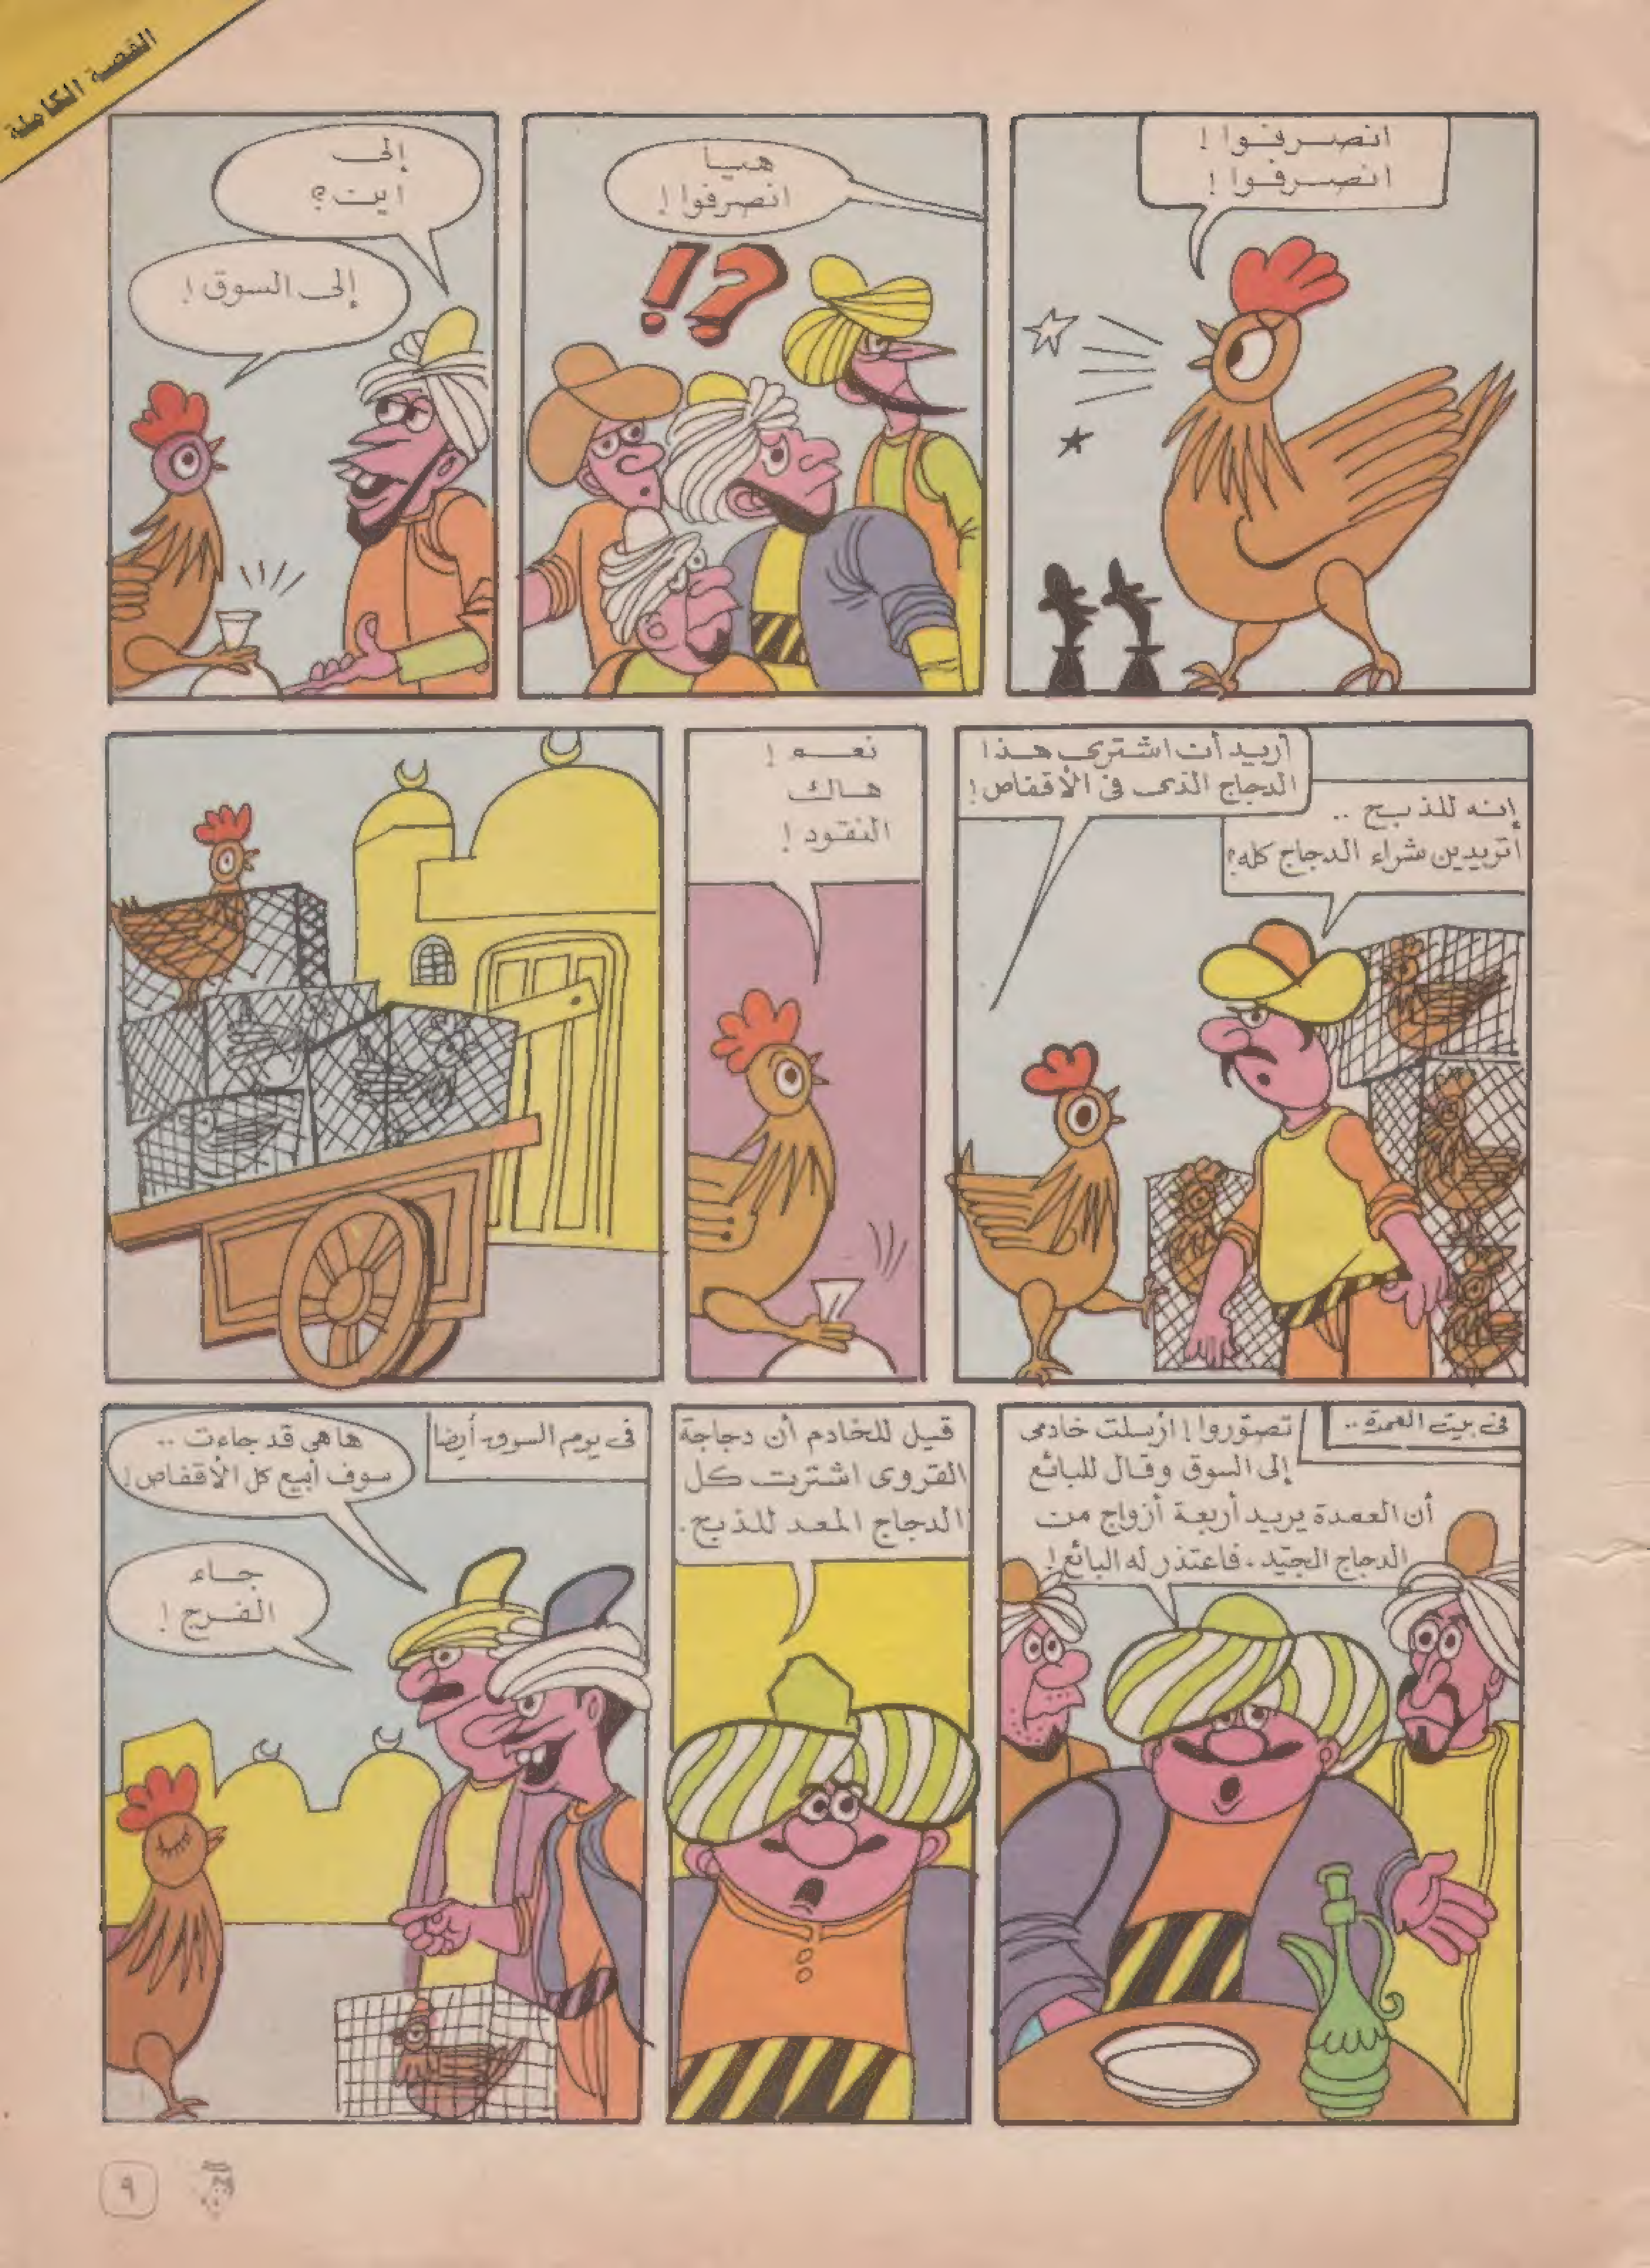 القصة الكاملة
انصرفوا !
انصرفوا !
هيا
انصرفوا !
إلى
اين ؟
إلى السوق !
أريد أن اشترى هذا
الدجاج الذى فى الأقفاص !
إنه للذبح ..
أتريدين شراء الدجاج كله ؟
نعم !
هاك
النقود !
فى بيت العمدة ..
تصوّروا ! أرسلت خادمى
إلى السوق وقال للبائع
أن العمدة يريد أربعة أزواج من
الدجاج الجيّد . فاعتذر له البائع !
قيل للخادم أن دجاجة
القروى اشترت كل
الدجاج المعد للذبح .
فى يوم السوق أيضا
ها هى قد جاءت ..
سوف أبيع كل الأقفاص !
جاء
الفرج !
٩